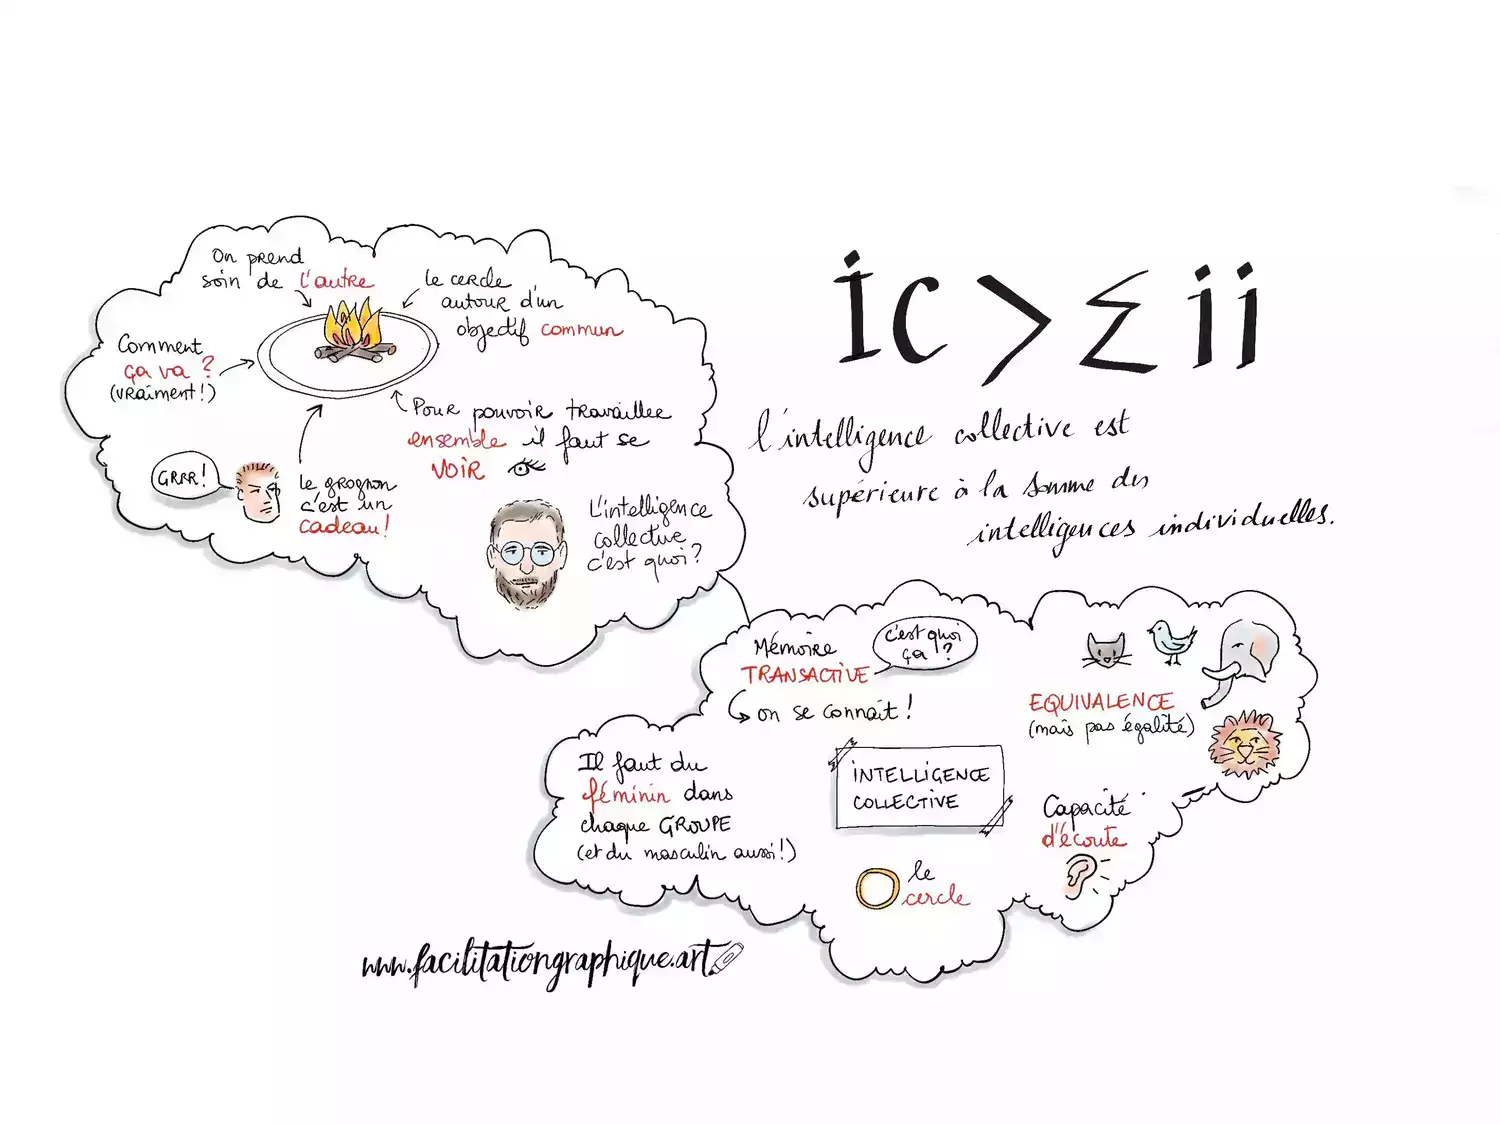 On prend
soin de l'autre
le cercle
autour d'un
objectif commun
Comment
ça va ?
(vraiment !)
Pour pouvoir travailler
ensemble il faut se
VOIR
GRRR !
le grognon
c'est un
cadeau !
L'intelligence
collective
c'est quoi ?
ic > Σ ii
l'intelligence collective est
supérieure à la somme des
intelligences individuelles.
Mémoire
TRANSACTIVE
c'est quoi
ça ?
on se connait !
EQUIVALENCE
(mais pas égalité)
Il faut du
féminin dans
chaque GROUPE
(et du masculin aussi !)
INTELLIGENCE
COLLECTIVE
Capacité
d'écoute
le
cercle
www.facilitationgraphique.art